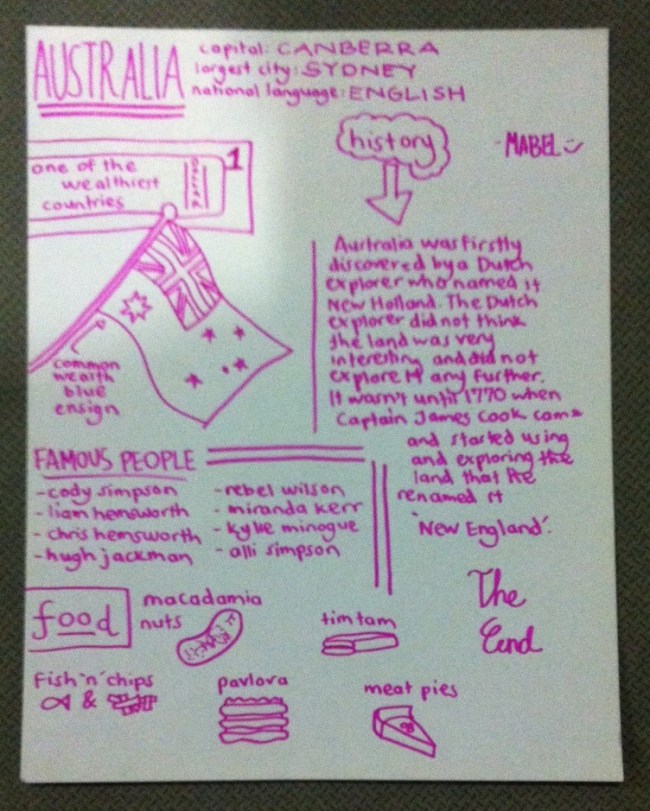 AUSTRALIA
capital: CANBERRA
largest city: SYDNEY
national language: ENGLISH
history
- MABEL
one of the
wealthiest
countries
DOLLAR
1
common
wealth
blue
ensign
Australia was firstly
discovered by a Dutch
explorer who named it
New Holland. The Dutch
explorer did not think
the land was very
interesting and did not
explore it any further.
It wasn't until 1770 when
Captain James Cook came
and started using
and exploring the
land that he
renamed it
'New England'.
The
End
FAMOUS PEOPLE
- cody simpson
- liam hemsworth
- chris hemsworth
- hugh jackman
- rebel wilson
- miranda kerr
- kylie minogue
- alli simpson
food
macadamia
nuts
tim tam
Fish 'n' chips
&
pavlova
meat pies